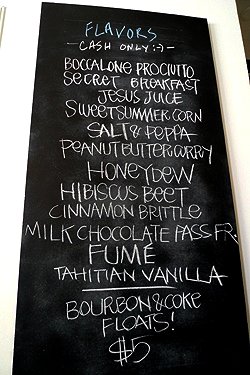 FLAVORS
- CASH ONLY :-) -
BOCCALONE PROCIUTTO
SECRET BREAKFAST
JESUS JUICE
SWEET SUMMER CORN
SALT & PEPPA
PEANUT BUTTER CURRY
HONEYDEW
HIBISCUS BEET
CINNAMON BRITTLE
MILK CHOCOLATE PASS FR.
FUMÉ
TAHITIAN VANILLA
BOURBON & COKE
FLOATS!
$5